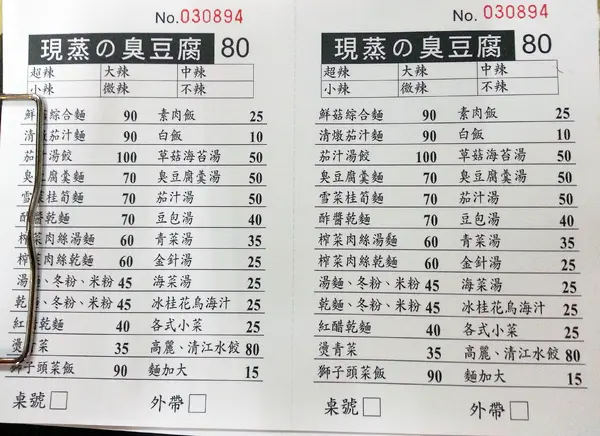 No. 030894
現蒸の臭豆腐 80
超辣 大辣 中辣
小辣 微辣 不辣
鮮菇綜合麵 90 素肉飯 25
清燉茄汁麵 90 白飯 10
茄汁湯餃 100 草菇海苔湯 50
臭豆腐羹麵 70 臭豆腐羹湯 50
雪菜桂筍麵 70 茄汁湯 50
酢醬乾麵 70 豆包湯 40
榨菜肉絲湯麵 60 青菜湯 35
榨菜肉絲乾麵 60 金針湯 25
湯麵、冬粉、米粉 45 海菜湯 25
乾麵、冬粉、米粉 45 冰桂花烏海汁 25
紅乾麵 40 各式小菜 25
燙青菜 35 高麗、清江水餃 80
獅子頭菜飯 90 麵加大 15
桌號 外帶
No. 030894
現蒸の臭豆腐 80
超辣 大辣 中辣
小辣 微辣 不辣
鮮菇綜合麵 90 素肉飯 25
清燉茄汁麵 90 白飯 10
茄汁湯餃 100 草菇海苔湯 50
臭豆腐羹麵 70 臭豆腐羹湯 50
雪菜桂筍麵 70 茄汁湯 50
酢醬乾麵 70 豆包湯 40
榨菜肉絲湯麵 60 青菜湯 35
榨菜肉絲乾麵 60 金針湯 25
湯麵、冬粉、米粉 45 海菜湯 25
乾麵、冬粉、米粉 45 冰桂花烏海汁 25
紅醋乾麵 40 各式小菜 25
燙青菜 35 高麗、清江水餃 80
獅子頭菜飯 90 麵加大 15
桌號 外帶